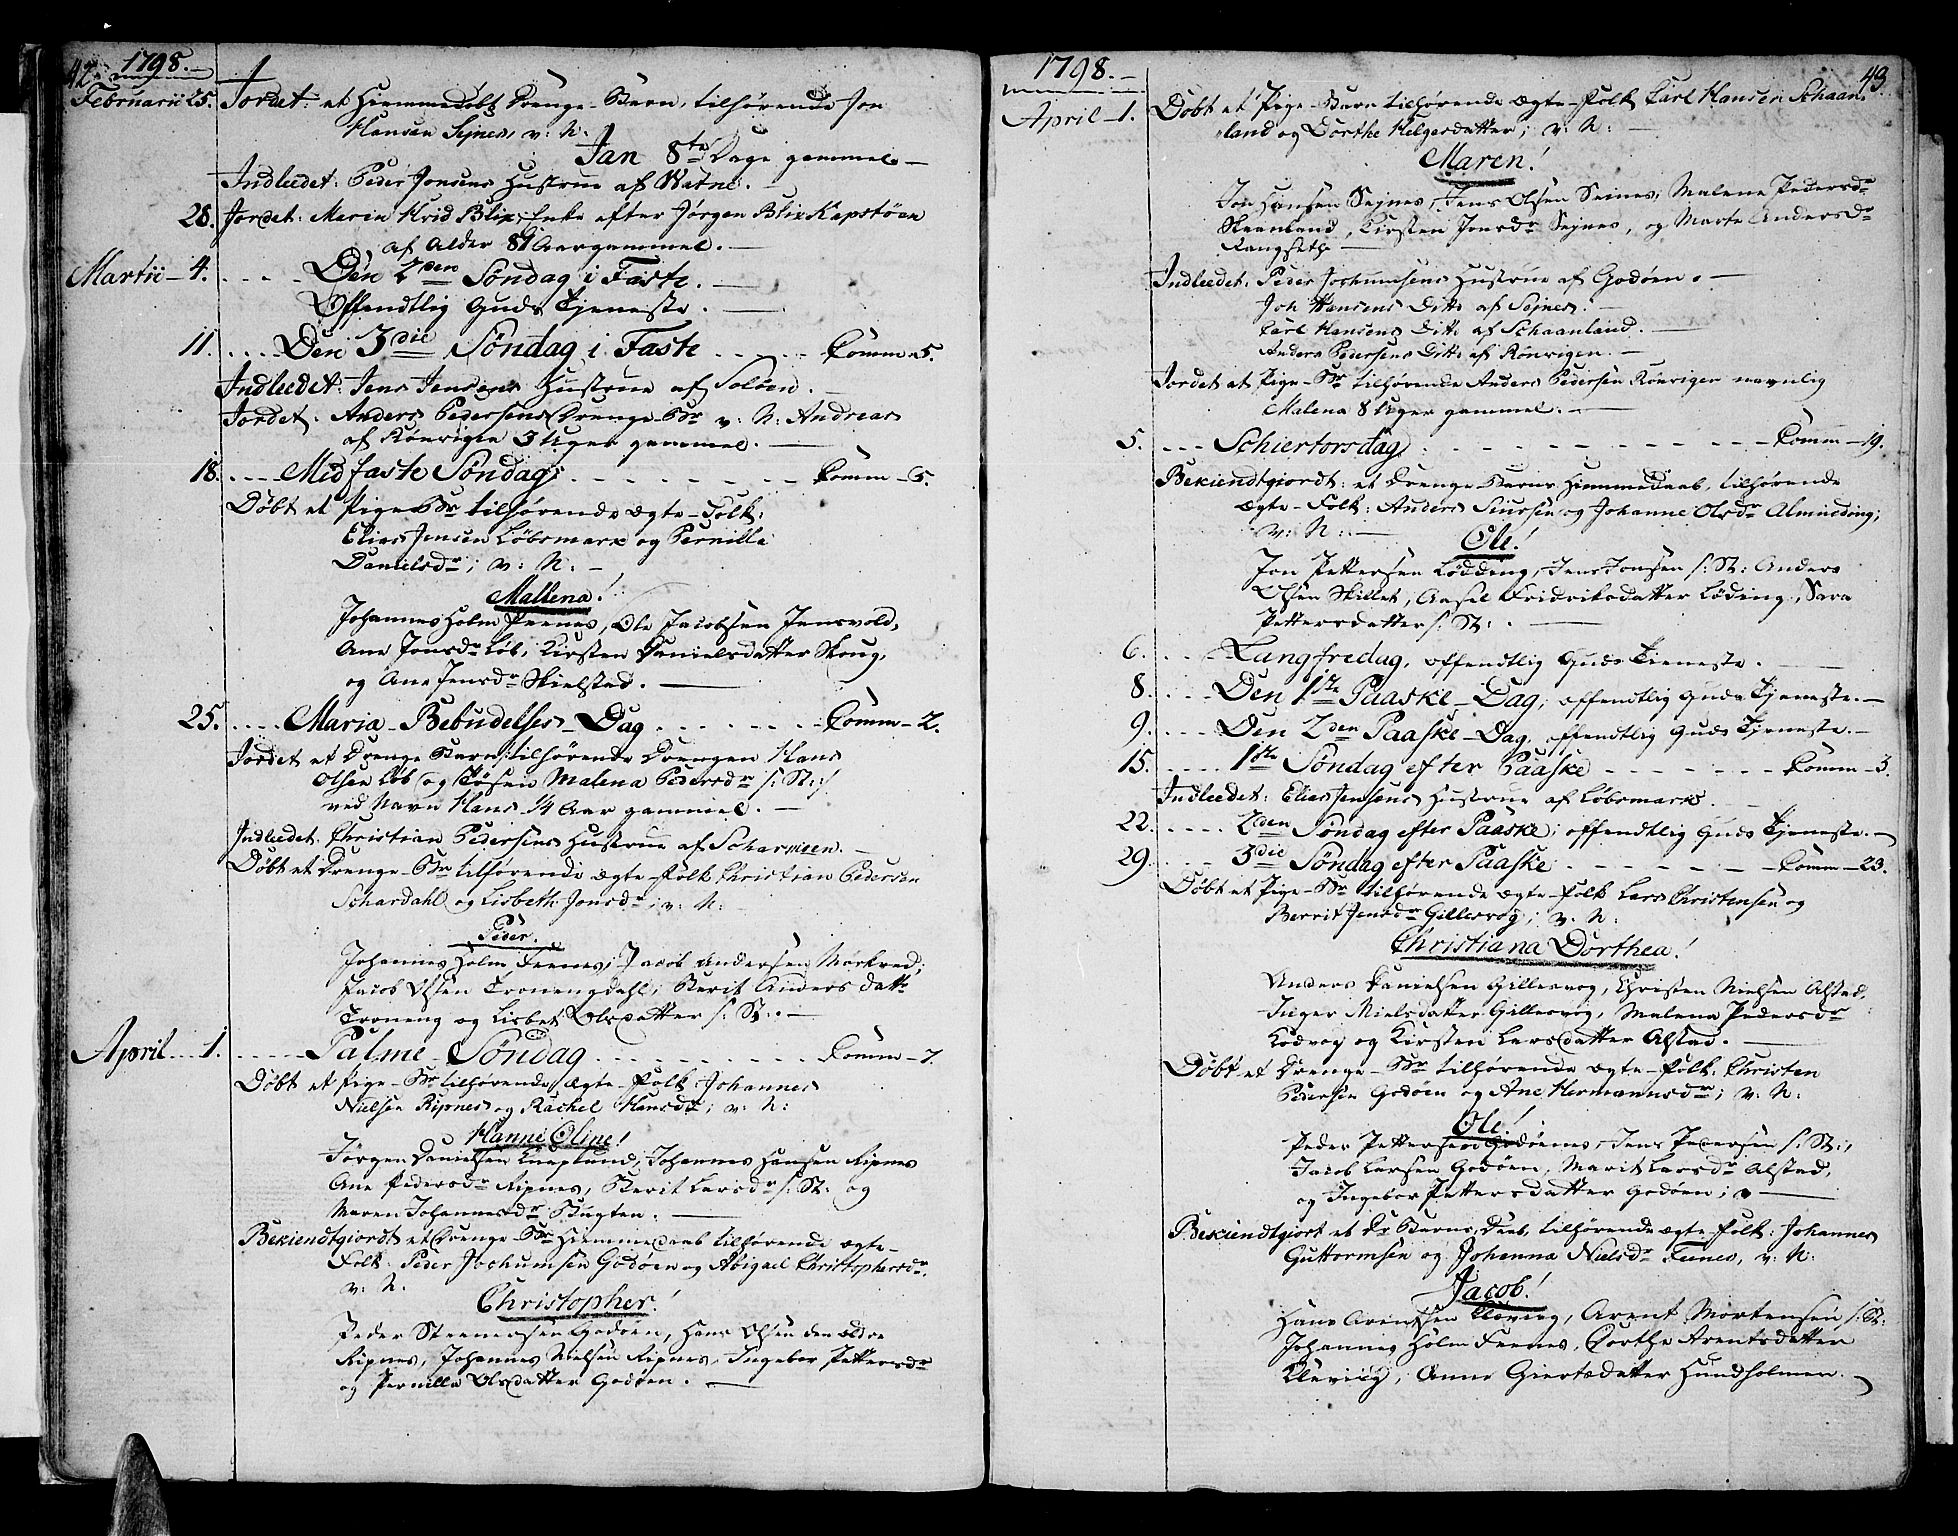 42. 1798.
Februarii 25. Jordet: et Hiemmedøbt Drenge-Barn, tilhørende Jon
Hansen Sejnes, v: N:
Jan 8te Dage gammel.
Indleedet: Peder Jonsens Hustrue af
28. Jordet: Maren Hvid Blix, Enke efter Jørgen Blix Kapstøen
af Alder 81 Aar gammel.
Martii 4. Den 2den Søndag i Faste.
Offendtlig Guds Tjeneste.
11. Den 3die Søndag i Faste Comm 5.
Indleedet: Jens Jensens Hustrue af Soløen.
Jordet: Anders Pedersens Drenge-Br v: N: Andreas
af Rønvigen 3 Uger gammel.
18. Midfaste Søndag Comm 6.
Døbt et Pige Br tilhørende Ægte-Folk:
Elias Jensen Løbsmark og Pernille
Danielsdr; v: N:
Mallena!
Johannes Holm Feenes, Ole Jacobsen Jensvold,
Ane Jonsdr Løb, Kirsten Danielsdatter Skoug,
og Ane Jensdr Skielstad.
25. Maria Bebudelses Dag Comm 2.
Jordet et Drenge Barn, tilhørende Drengen Hans
Olsen Løb og Tøsen Malena Pedersdr /: St: /
ved Navn Hans 1/4 Aar gammel.
Indleedet: Christian Pedersens Hustrue af
Døbt et Drenge-Br tilhørende Ægte-Folk Christian Pedersen
Schardahl og Lisbeth Jonsdr; v: N:
Peder.
Johannes Holm Feenes, Jacob Andersen Mørkved,
Jacob Olsen Troneng dahl, Berit Anders datr
Troneng og Lisbet Olsdatter /: St:
April 1. Palme Søndag Comm 7.
Døbt et Pige-Br tilhørende Ægte-Folk Johannes
Nielsen Ripnes og Rachel Hansdr; v: N:
Hanne Oline!
Jørgen Danielsen Knaplund, Johannes Hansen Ripnes
Ane Pedersdr Ripnes, Berit Larsdr /: St: og
Maren Johannesdr Bugten.
Bekiendtgiordt et Drenge-Br Hiemmedaab tilhørende Ægte-
Folk: Peder Jochumsen Godøen og Abigael Christophersdr.
v: N:
Christopher!
Peder Steenersen Godøen, Hans Olsen den Ældre
Ripnes, Johannes Nielsen Ripnes, Ingebor Pettersdr
og Pernilla Olsdatter Godøen.
1798. 43.
April 1. Døbt et Pige-Barn tilhørende Ægte-Folk Carl Hansen Schaan
land og Dorthe Helgesdatter; v: N:
Maren!
Jon Hansen Sejnes, Jens Olsen Seines, Malena Pedersdr
Skaanland, Kirsten Jonsdr Sejnes, og Marte Andersdr
Indleedet: Peder Jochumsens Hustrue af Godøen.
Joh Hansens Ditto af Sejnes.
Carl Hansens Ditto af Schaanland.
Anders Pedersens Ditto af Rønvigen.
Jordet et Pige-Br tilhørende Anders Pedersen Rønvigen navnlig
Malena 8 Uger gammel.
5. Schiertorsdag Comm 19.
Bekiendtgiordt: et Drenge Barns Hiemmedaab, tilhørende
Ægte-Folk: Anders Siursen og Johanne Olsdr Almindding,
v: N:
Ole!
Jon Pettersen Lødding, Jens Jonsen /: St: Anders
Olsen Skillet, Aasel Fridriksdatter Løding, Sara
Pettersdatter /: St:
6. Langfredag, offendtlig Guds Tieneste.
8. Den 1ste Paaske-Dag, offendtlig Guds Tjeneste.
9. Den 2den Paaske-Dag, offendtlig Guds Tjeneste.
15. 1ste Søndag efter Paaske Comm 3.
Indleedet: Elias Jensens Hustrue af Løbsmark.
22. 2den Søndag efter Paaske, offendtlig Guds Tjeneste.
29. 3die Søndag efter Paaske Comm 23.
Døbt et Pige-Br tilhørende Ægte-Folk Lars Christensen og
Berrit Jensdr Gillesvog, v: N:
Christiana Dorthea!
Anders Danielsen Gillesvog, Christen Nielsen Alstad,
Inger Nielsdatter Gillesvog, Malena Pedersdr
Kodvog og Kirsten Larsdatter Alstad.
Døbt et Drenge-Br tilhørende Ægte-Folk: Christen
Pedersen Godøen og Ane Hermannsdr; v: N:
Ole!
Peder Pettersen Godøenes, Jens Pedersen /: St:,
Jacob Larsen Godøen, Marit Larsdr Alstad,
og Ingebor Pettersdatter Godøen;
Bekiendtgiort et Dr Barns Daab, tilhørende Ægte-Folk: Johannes
Guttormsen og Johanna Nielsdr Feenes, v: N:
Jacob!
Hans Arentsen Klevvig, Arent Mortensen /: St:
Johannes Holm Feenes, Dorthe Arentsdatter
Klevvig, Anne Giertsdatter Hundholmen.